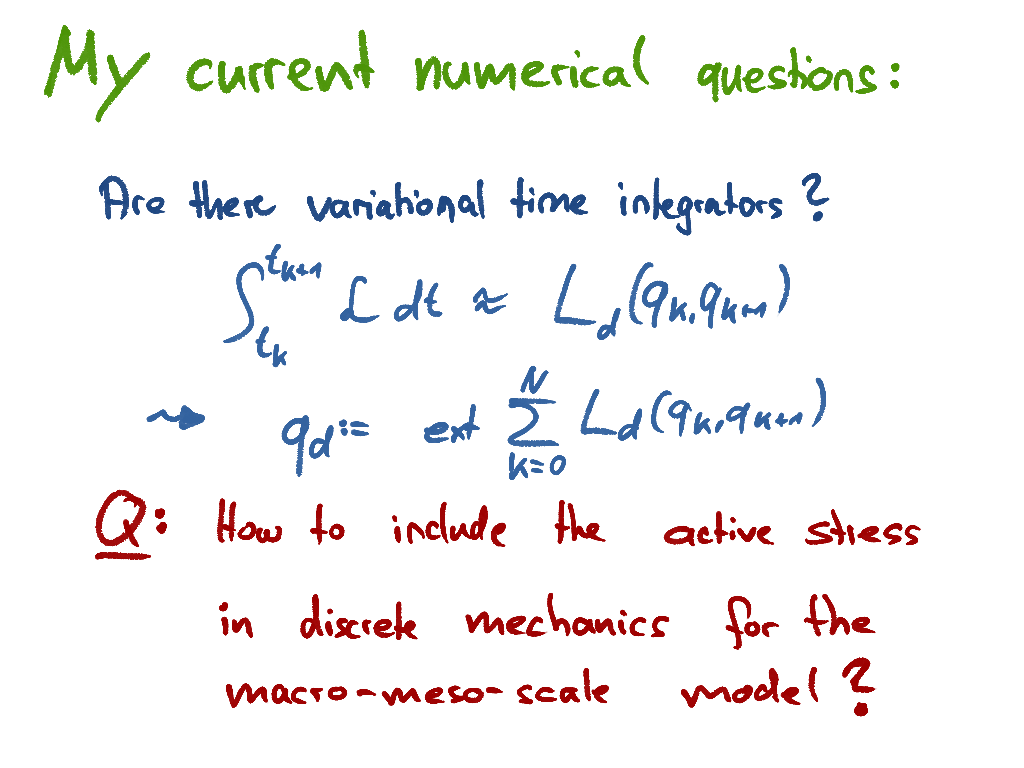 My current numerical questions:
Are there variational time integrators?
∫_{t_k}^{t_{k+1}} ℒ dt ≈ L_d(q_k, q_{k+1})
⇝ q_d := ext ∑_{k=0}^{N} L_d(q_k, q_{k+1})
Q: How to include the active stress
in discrete mechanics for the
macro-meso-scale model?